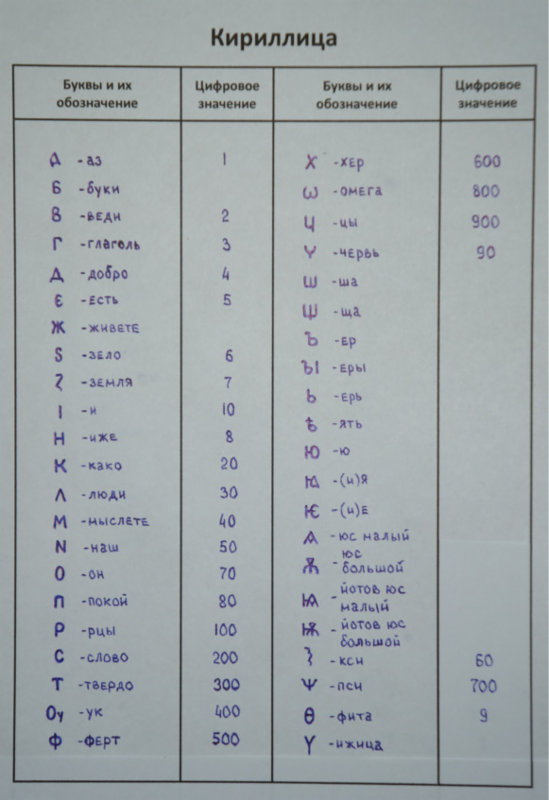 Кириллица
Буквы и их обозначение Цифровое значение Буквы и их обозначение Цифровое значение
А - аз 1
Б - буки
В - веди 2
Г - глаголь 3
Д - добро 4
Є - есть 5
Ж - живете
Ѕ - зело 6
Ꙁ - земля 7
І - и 10
Н - иже 8
К - како 20
Л - люди 30
М - мыслете 40
N - наш 50
О - он 70
П - покой 80
Р - рцы 100
С - слово 200
Т - твердо 300
Оу - ук 400
Ф - ферт 500
Х - хер 600
Ѡ - омега 800
Ц - цы 900
Ч - червь 90
Ш - ша
Щ - ща
Ъ - ер
ЪІ - еры
Ь - ерь
Ѣ - ять
Ю - ю
Ꙗ - (и)я
Ѥ - (и)е
Ѧ - юс малый
Ѫ - юс большой
Ѩ - йотов юс малый
Ѭ - йотов юс большой
Ѯ - кси 60
Ѱ - пси 700
Ѳ - фита 9
Ѵ - ижица